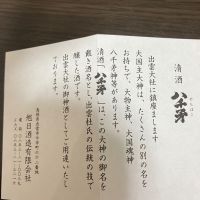 清酒 八千矛
出雲大社に鎮座します
大国主大神は、たくさんの別の名を
お持ちで、大物主神、大国魂神
八千矛神等があります。
清酒「八千矛」は、この大神の御名を
戴き酒名とし、出雲杜氏の伝統の技で
醸した酒です。
出雲大社の御神酒としてご用達いたし
ております。
旭日酒造有限会社